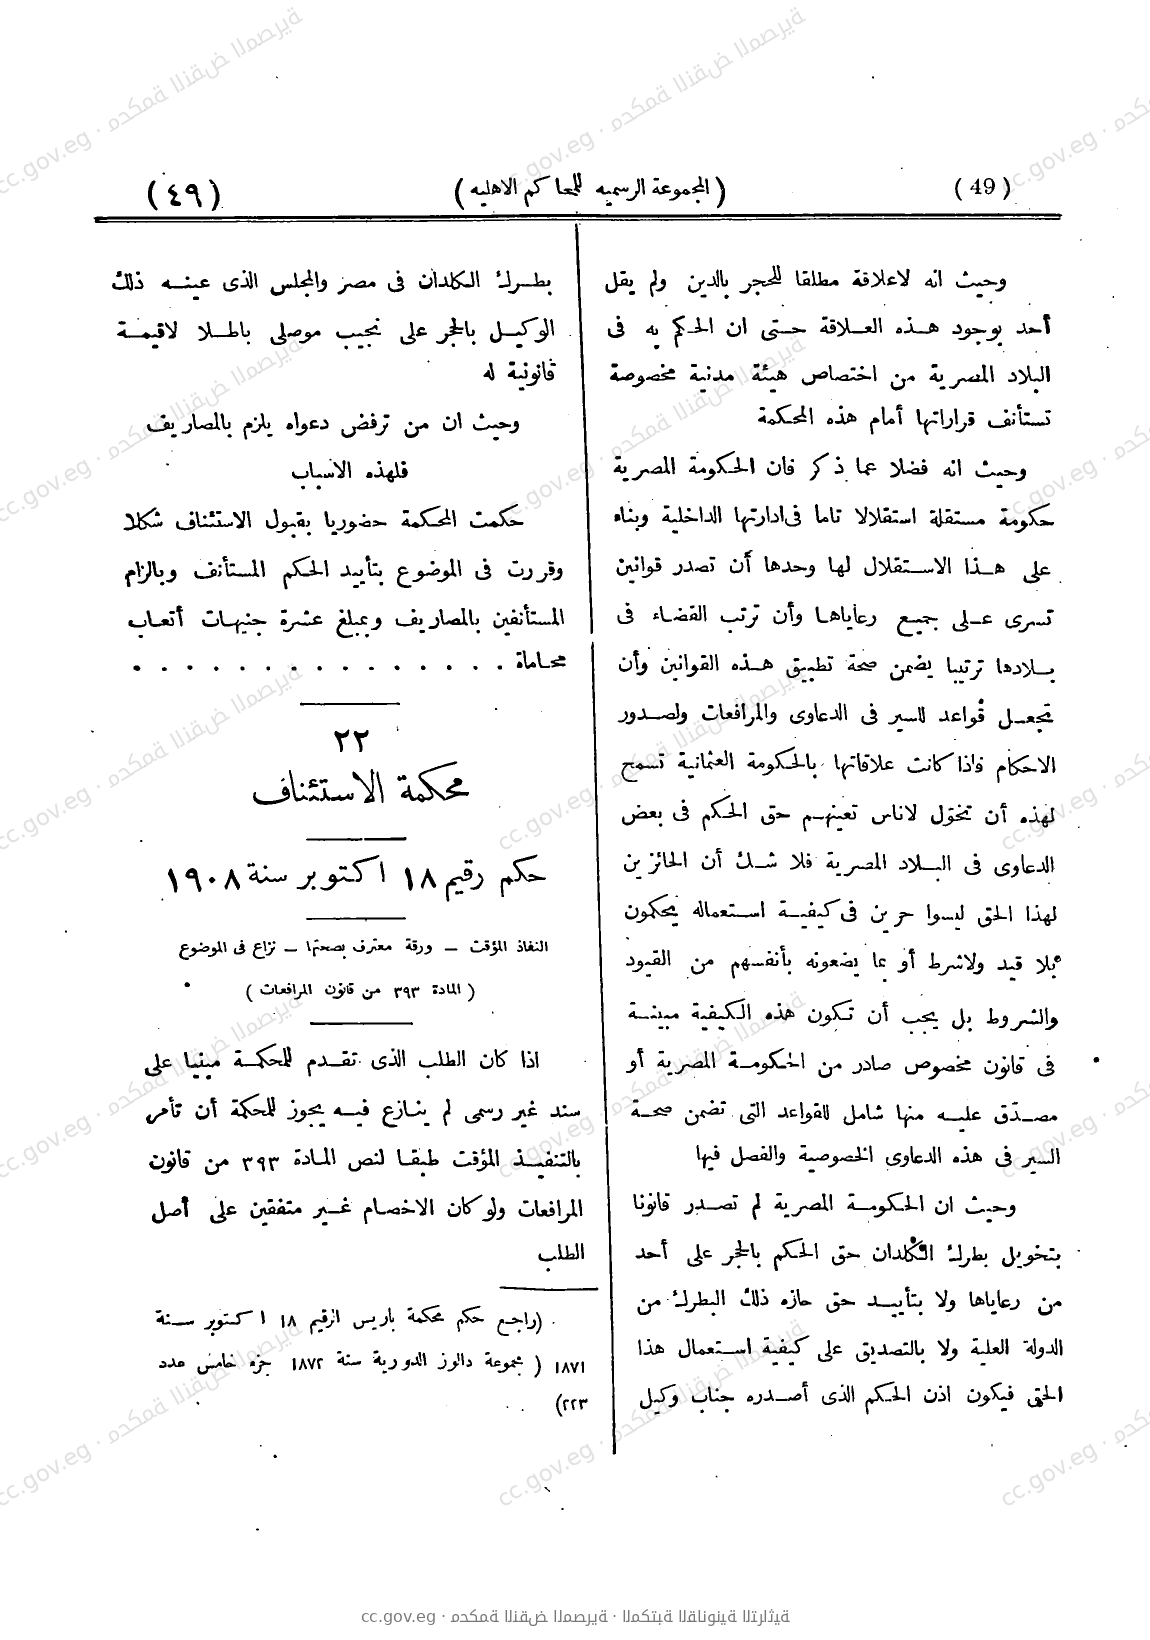 (49)
(المجموعة الرسميه للمحاكم الاهليه)
(٤٩)
وحيث انه لاعلاقة مطلقا للحجر بالدين ولم يقل
أحد بوجود هذه العلاقة حتى ان الحكم به فى
البلاد المصرية من اختصاص هيئة مدنية مخصوصة
تستأنف قراراتها أمام هذه المحكمة
وحيث انه فضلا عما ذكر فان الحكومة المصرية
حكومة مستقلة استقلالا تاما فى ادارتها الداخلية وبناء
على هذا الاستقلال لها وحدها أن تصدر قوانين
تسرى على جميع رعاياها وأن ترتب القضاء فى
بلادها ترتيبا يضمن صحة تطبيق هذه القوانين وأن
تجعل قواعد للسير فى الدعاوى والمرافعات ولصدور
الاحكام فاذا كانت علاقاتها بالحكومة العثمانية تسمح
لهذه أن تخول لاناس تعينهم حق الحكم فى بعض
الدعاوى فى البلاد المصرية فلا شك أن الحائزين
لهذا الحق ليسوا حرين فى كيفية استعماله يحكمون
بلا قيد ولاشرط أو بما يضعونه بأنفسهم من القيود
والشروط بل يجب أن تكون هذه الكيفية مبينة
فى قانون مخصوص صادر من الحكومة المصرية أو
مصدّق عليه منها شامل للقواعد التى تضمن صحة
السير فى هذه الدعاوى الخصوصية والفصل فيها
وحيث ان الحكومة المصرية لم تصدر قانونا
بتخويل بطرك الكلدان حق الحكم بالحجر على أحد
من رعاياها ولا بتأييد حق حازه ذلك البطرك من
الدولة العلية ولا بالتصديق على كيفية استعمال هذا
الحق فيكون اذن الحكم الذى أصدره جناب وكيل
بطرك الكلدان فى مصر والمجلس الذى عينه ذلك
الوكيل بالحجر على نجيب موصلى باطلا لاقيمة
قانونية له
وحيث ان من ترفض دعواه يلزم بالمصاريف
فلهذه الاسباب
حكمت المحكمة حضوريا بقبول الاستئناف شكلا
وقررت فى الموضوع بتأييد الحكم المستأنف وبالزام
المستأنفين بالمصاريف وبمبلغ عشرة جنيهات أتعاب
محاماة . . . . . . . . . . . . . .
٢٢
محكمة الاستئناف
حكم رقيم ١٨ اكتوبر سنة ١٩٠٨
النفاذ المؤقت – ورقة معترف بصحتها – نزاع فى الموضوع
(المادة ٣٩٣ من قانون المرافعات)
اذا كان الطلب الذى تقدم للمحكمة مبنيا على
سند غير رسمى لم ينازع فيه يجوز للمحكمة أن تأمر
بالتنفيذ المؤقت طبقا لنص المادة ٣٩٣ من قانون
المرافعات ولو كان الاخصام غير متفقين على أصل
الطلب
(راجع حكم محكمة باريس الرقيم ١٨ اكتوبر سنة
١٨٧١ (مجموعة دالوز الدورية سنة ١٨٧٢ جزء خامس عدد
٢٢٣)
cc.gov.eg · محكمة النقض المصرية · المكتبة القانونية التراثية